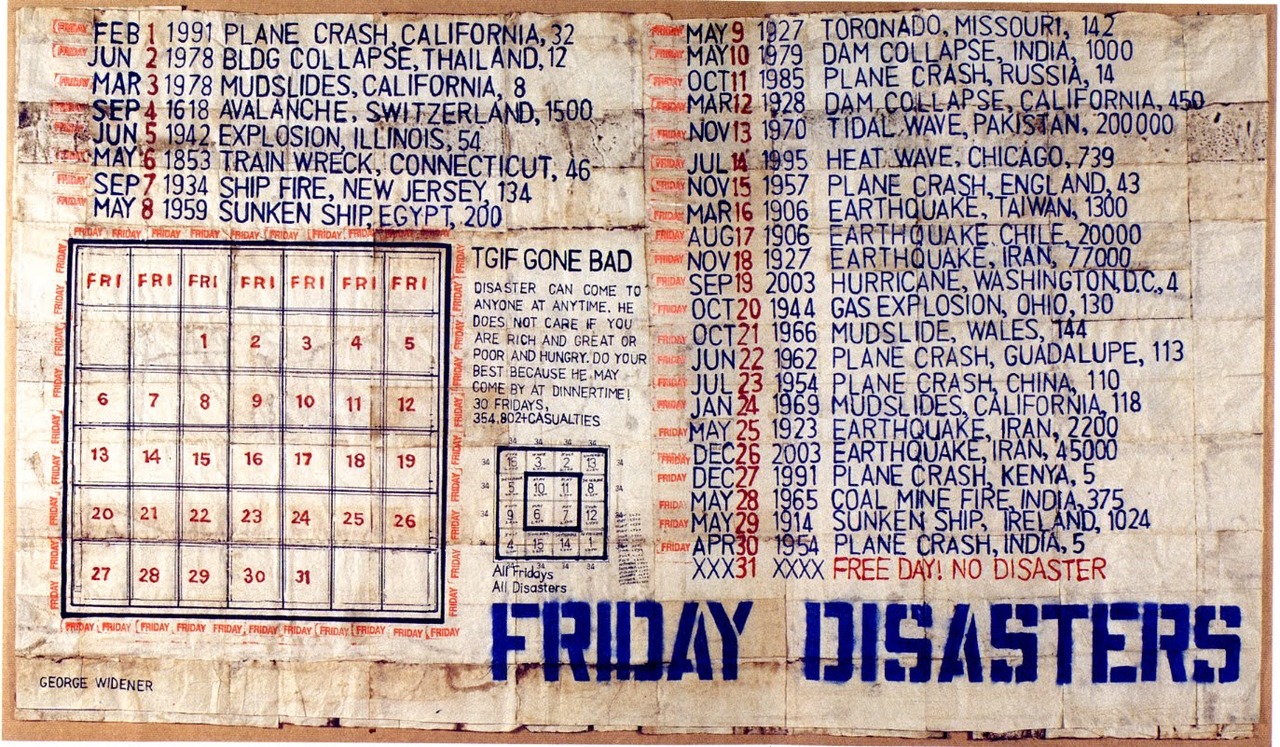 FRIDAY FEB 1 1991 PLANE CRASH, CALIFORNIA, 32
FRIDAY JUN 2 1978 BLDG COLLAPSE, THAILAND, 12
FRIDAY MAR 3 1978 MUDSLIDES, CALIFORNIA, 8
FRIDAY SEP 4 1618 AVALANCHE, SWITZERLAND, 1500
FRIDAY JUN 5 1942 EXPLOSION, ILLINOIS, 54
FRIDAY MAY 6 1853 TRAIN WRECK, CONNECTICUT, 46
FRIDAY SEP 7 1934 SHIP FIRE, NEW JERSEY, 134
FRIDAY MAY 8 1959 SUNKEN SHIP, EGYPT, 200
FRIDAY MAY 9 1927 TORONADO, MISSOURI, 142
FRIDAY MAY 10 1979 DAM COLLAPSE, INDIA, 1000
FRIDAY OCT 11 1985 PLANE CRASH, RUSSIA, 14
FRIDAY MAR 12 1928 DAM COLLAPSE, CALIFORNIA, 450
FRIDAY NOV 13 1970 TIDAL WAVE, PAKISTAN, 200000
FRIDAY JUL 14 1995 HEAT WAVE, CHICAGO, 739
FRIDAY NOV 15 1957 PLANE CRASH, ENGLAND, 43
FRIDAY MAR 16 1906 EARTHQUAKE, TAIWAN, 1300
FRIDAY AUG 17 1906 EARTHQUAKE, CHILE, 20000
FRIDAY NOV 18 1927 EARTHQUAKE, IRAN, 77000
FRIDAY SEP 19 2003 HURRICANE, WASHINGTON,D.C., 4
FRIDAY OCT 20 1944 GAS EXPLOSION, OHIO, 130
FRIDAY OCT 21 1966 MUDSLIDE, WALES, 144
FRIDAY JUN 22 1962 PLANE CRASH, GUADALUPE, 113
FRIDAY JUL 23 1954 PLANE CRASH, CHINA, 110
FRIDAY JAN 24 1969 MUDSLIDES, CALIFORNIA, 118
FRIDAY MAY 25 1923 EARTHQUAKE, IRAN, 2200
FRIDAY DEC 26 2003 EARTHQUAKE, IRAN, 45000
FRIDAY DEC 27 1991 PLANE CRASH, KENYA, 5
FRIDAY MAY 28 1965 COAL MINE FIRE, INDIA, 375
FRIDAY MAY 29 1914 SUNKEN SHIP, IRELAND, 1024
FRIDAY APR 30 1954 PLANE CRASH, INDIA, 5
XXX 31 XXXX FREE DAY! NO DISASTER
FRIDAY FRIDAY FRIDAY FRIDAY FRIDAY FRIDAY FRIDAY FRIDAY FRIDAY FRIDAY
FRI FRI FRI FRI FRI FRI FRI
1 2 3 4 5
6 7 8 9 10 11 12
13 14 15 16 17 18 19
20 21 22 23 24 25 26
27 28 29 30 31
FRIDAY FRIDAY FRIDAY FRIDAY FRIDAY FRIDAY FRIDAY FRIDAY FRIDAY FRIDAY
TGIF GONE BAD
DISASTER CAN COME TO
ANYONE AT ANYTIME. HE
DOES NOT CARE IF YOU
ARE RICH AND GREAT OR
POOR AND HUNGRY. DO YOUR
BEST BECAUSE HE MAY
COME BY AT DINNERTIME!
30 FRIDAYS,
354.802+CASUALTIES
34 34 34 34
34 16 3 2 13 34
34 5 10 11 8 34
34 9 6 7 12 34
34 4 15 14 1 34
34 34 34 34
All Fridays
All Disasters
FRIDAY DISASTERS
GEORGE WIDENER